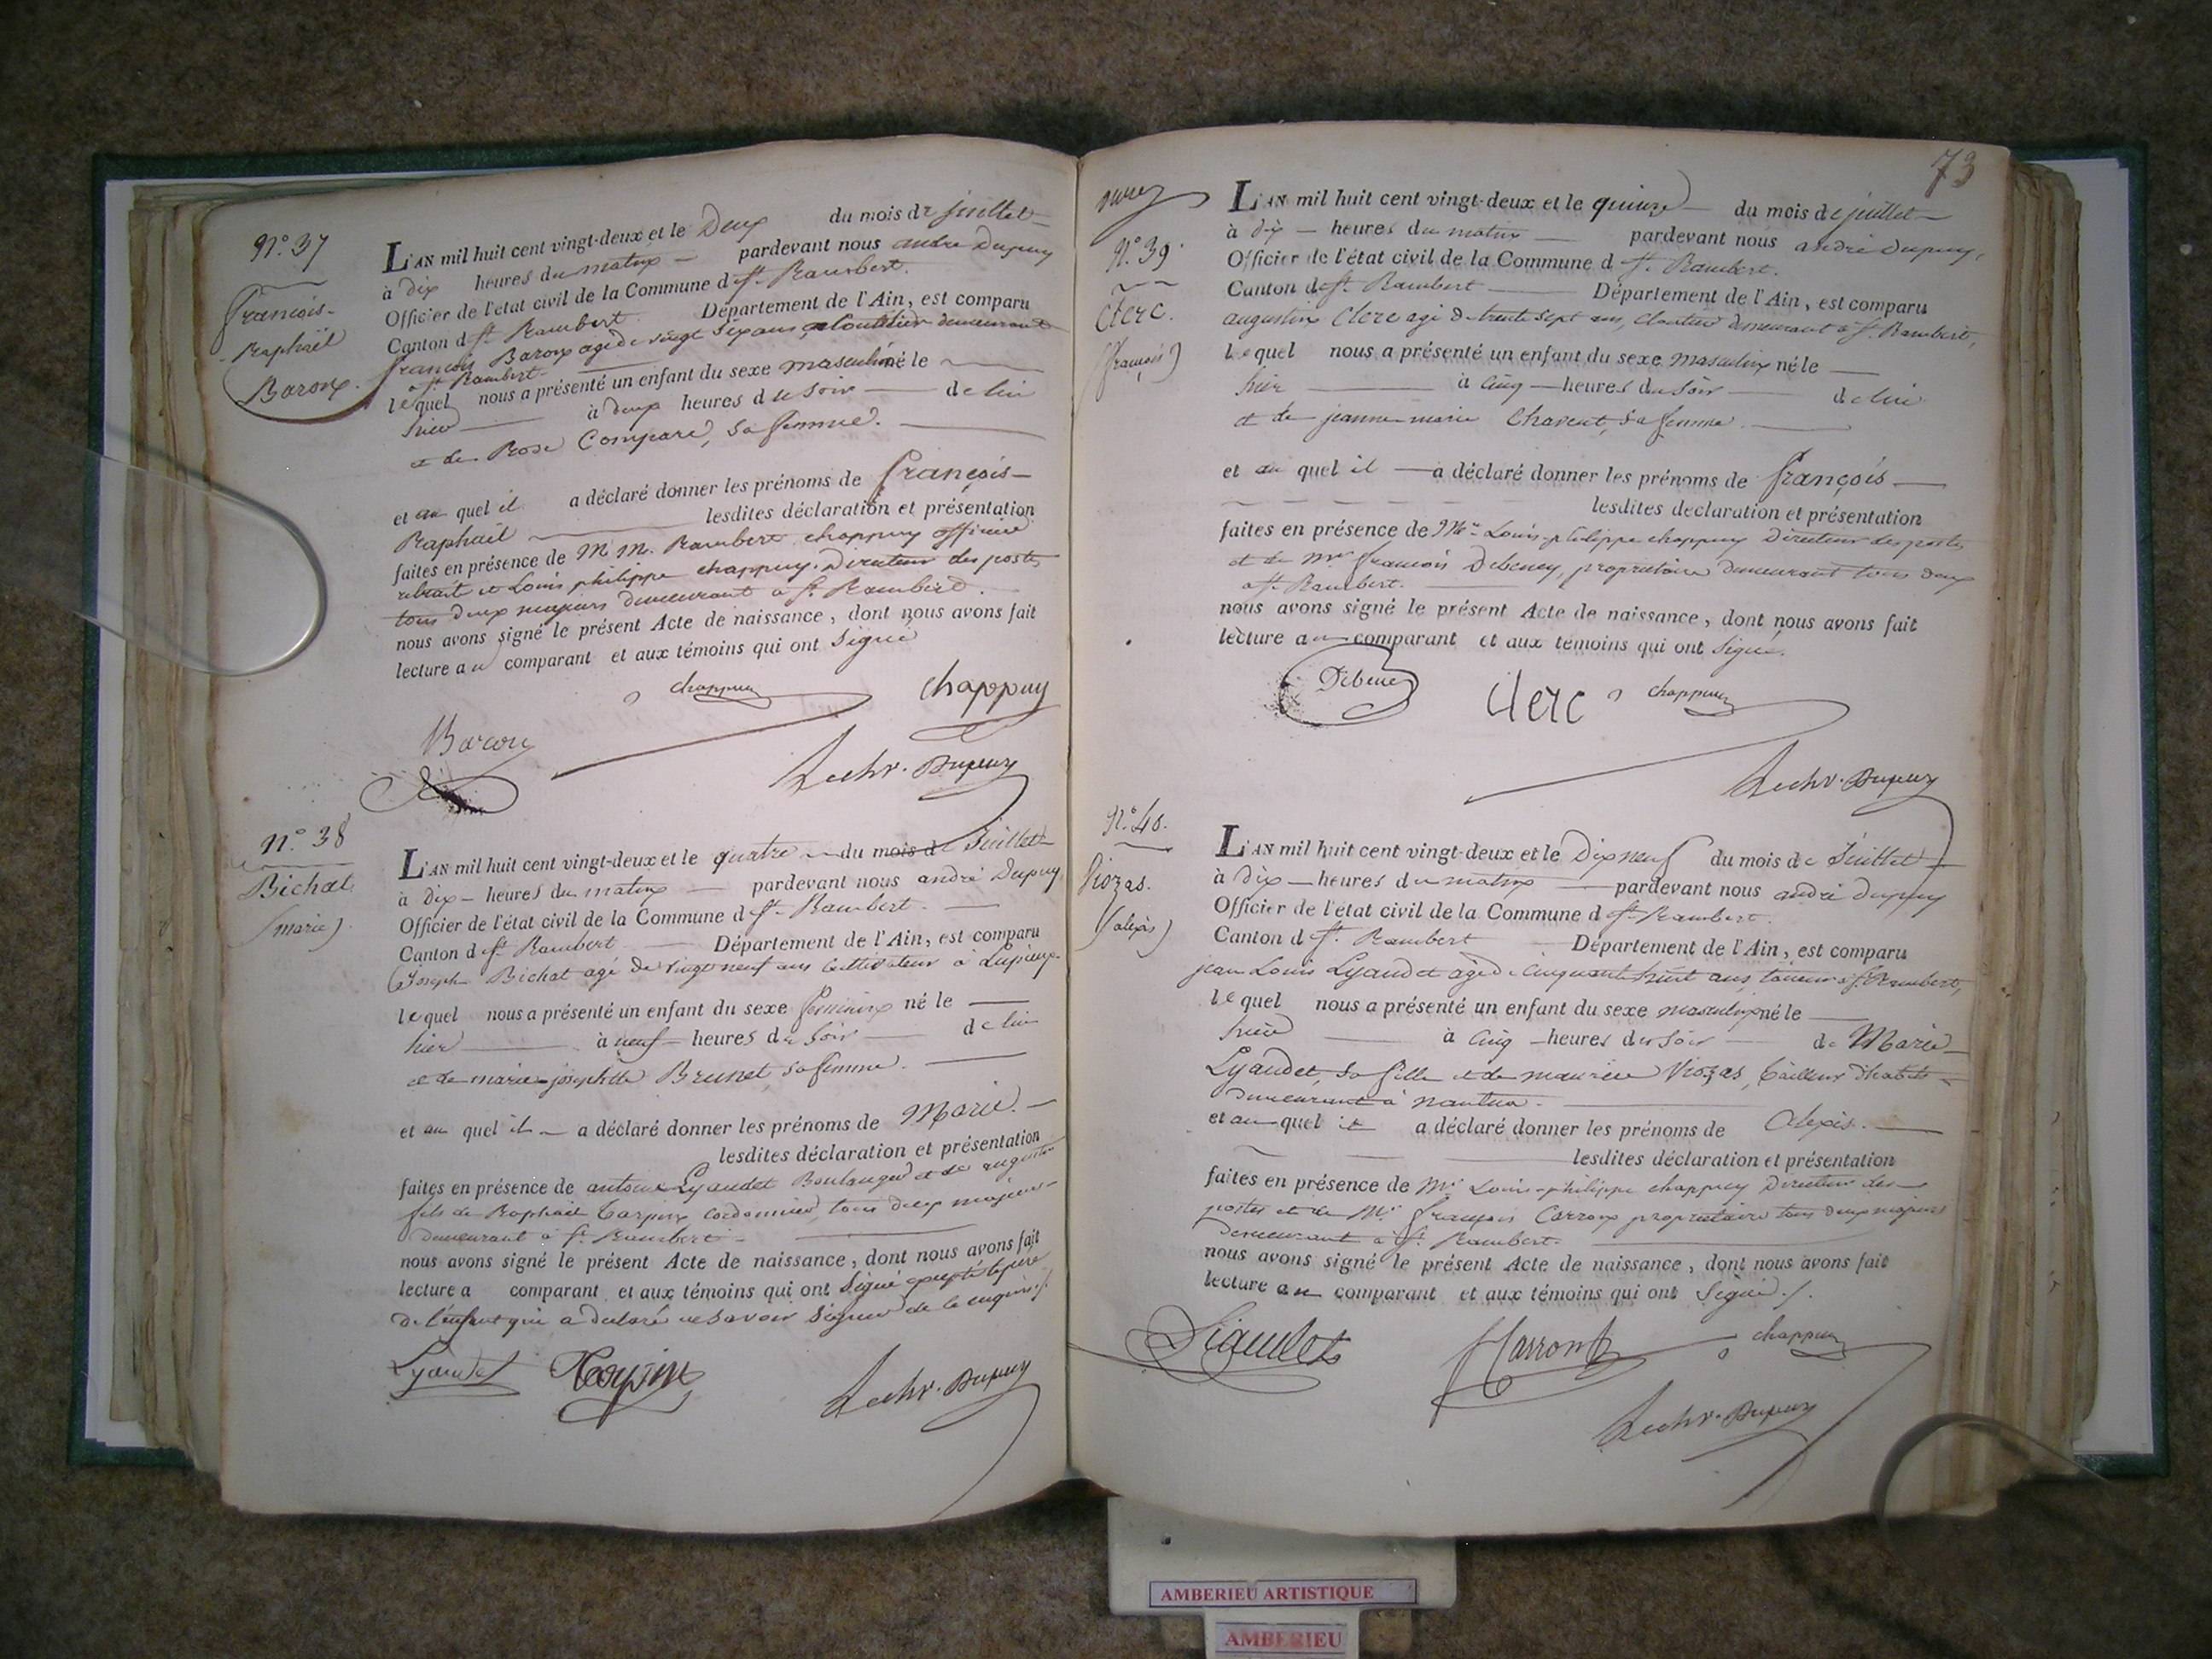 N.° 37
François-
Raphaël
Baron
L'AN mil huit cent vingt-deux et le Deux du mois de juillet
à dix heures du matin pardevant nous andré Dupuy
Officier de l'état civil de la Commune d St. Rambert.
Canton d St. Rambert Département de l'Ain, est comparu
françois Baron agé de vingt six ans cloutier demeurant
a St. Rambert.
lequel nous a présenté un enfant du sexe masculin né le
hier à deux heures du soir de lui
et de Rose Comparé, sa femme.
et au quel il a déclaré donner les prénoms de françois-
Raphaël lesdites déclaration et présentation
faites en présence de M M. Rambert chappuy officier
retraité et Louis philippe chappuy. Directeur des postes
tous deux majeurs demeurant a St. Rambert.
nous avons signé le présent Acte de naissance, dont nous avons fait
lecture au comparant et aux témoins qui ont signé
chappuy chappuy
Baron
Lechr. Dupuy
N.° 38
Bichat
(marie)
L'AN mil huit cent vingt-deux et le quatre du mois de Juillet
à dix heures du matin pardevant nous andré Dupuy
Officier de l'état civil de la Commune d St. Rambert.
Canton d St. Rambert Département de l'Ain, est comparu
Joseph Bichat agé de vingt neuf ans cultivateur a Lupieux.
lequel nous a présenté un enfant du sexe feminin né le
hier à neuf heures du soir de lui
et de marie-josephtte Brunet, sa femme.
et au quel il a déclaré donner les prénoms de Marie.
lesdites déclaration et présentation
faites en présence de antoine Lyaudet Boulanger et de augustin
fils de Raphael Carpin cordonnier, tous deux majeurs
demeurant a St. Rambert
nous avons signé le présent Acte de naissance, dont nous avons fait
lecture a comparant et aux témoins qui ont signé excepté le père
de l'enfant qui a declaré ne savoir signer de ce enquis
Lyaudet Carpin
Lechr. Dupuy
73
N.° 39
Clerc.
(françois)
L'AN mil huit cent vingt-deux et le quinze du mois de juillet
à dix heures du matin pardevant nous andré dupuy,
Officier de l'état civil de la Commune d St. Rambert.
Canton d St. Rambert Département de l'Ain, est comparu
augustin Clerc agé de trente sept ans, cloutier demeurant a St. Rambert,
lequel nous a présenté un enfant du sexe masculin né le
hier à cinq heures du soir de lui
et de jeanne-marie Charent, sa femme.
et au quel il a déclaré donner les prénoms de françois
lesdites declaration et présentation
faites en présence de Mr. Louis-philippe chappuy Directeur des postes
et de Mr. françois Debeney, proprietaire demeurant tous deux
a St. Rambert.
nous avons signé le présent Acte de naissance, dont nous avons fait
lecture au comparant et aux témoins qui ont signé.
Debeney Clerc chappuy
Lechr. Dupuy
N.° 40.
Viozas.
(alexis)
L'AN mil huit cent vingt-deux et le Dix neuf du mois de Juillet
à dix heures du matin pardevant nous andré dupuy
Officier de l'état civil de la Commune d St. Rambert.
Canton d St. Rambert Département de l'Ain, est comparu
jean Louis Lyaudet agé de cinquante huit ans, a St. Rambert,
lequel nous a présenté un enfant du sexe masculin né le
hier à cinq heures du soir de Marie
Lyaudet, sa fille et de maurice Viozas, tailleur d'habits
demeurant à nantua.
et au quel il a déclaré donner les prénoms de alexis.
lesdites déclaration et présentation
faites en présence de Mr. Louis-philippe chappuy Directeur des
postes et de Mr. françois Carron proprietaire tous deux majeurs
demeurant a St. Rambert.
nous avons signé le présent Acte de naissance, dont nous avons fait
lecture au comparant et aux témoins qui ont signé
Liaudet Carron chappuy
Lechr. Dupuy
AMBERIEU ARTISTIQUE
AMBERIEU